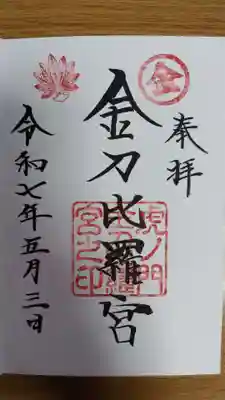 奉拝
金
金刀比羅宮
虎ノ門
宮之印
令和七年五月三日